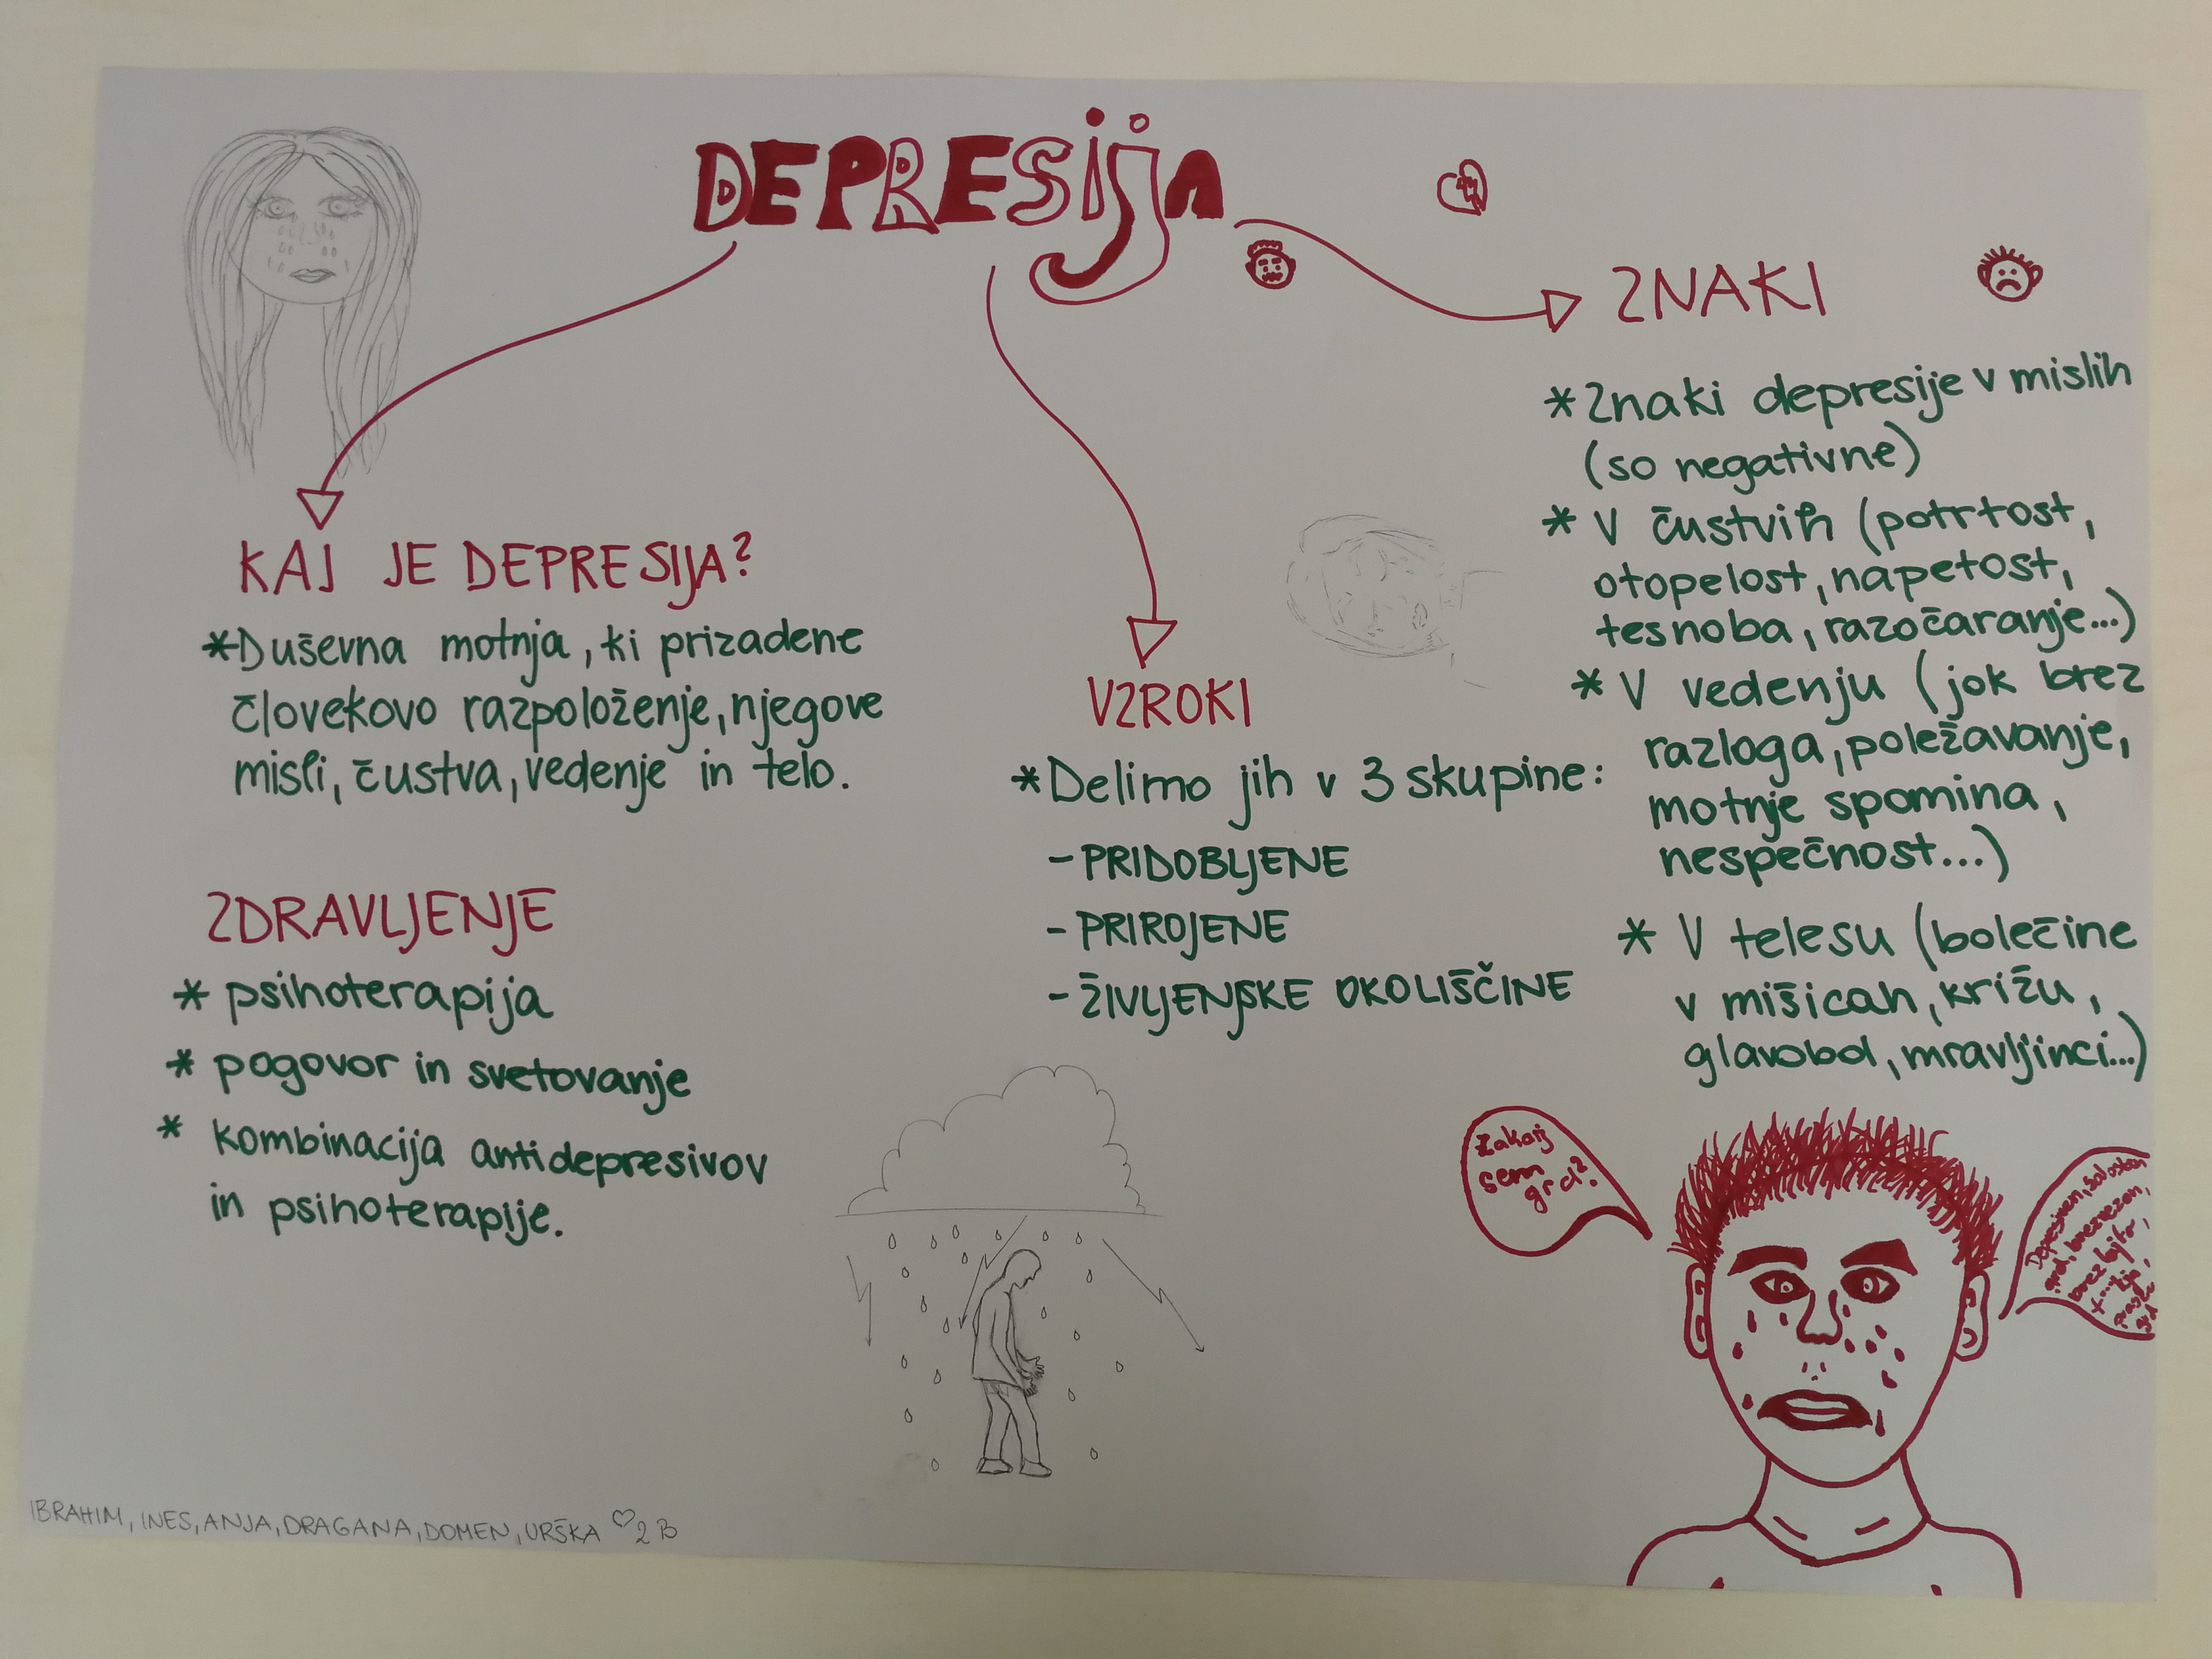 DEPRESIJA
KAJ JE DEPRESIJA?
*Duševna motnja, ki prizadene
človekovo razpoloženje, njegove
misli, čustva, vedenje in telo.
ZDRAVLJENJE
* psihoterapija
* pogovor in svetovanje
* kombinacija antidepresivov
in psihoterapije.
VZROKI
*Delimo jih v 3 skupine:
- PRIDOBLJENE
- PRIROJENE
- ŽIVLJENJSKE OKOLIŠČINE
ZNAKI
*Znaki depresije v mislih
(so negativne)
* V čustvih (potrtost,
otopelost, napetost,
tesnoba, razočaranje...)
* V vedenju (jok brez
razloga, poležavanje,
motnje spomina,
nespečnost...)
* V telesu (bolečine
v mišicah, križu,
glavobol, mravljinci...)
Zakaj
sem
grd?
Depresiven,
grd,
brez
IBRAHIM, INES, ANJA, DRAGANA, DOMEN, URŠKA ♡ 2 B